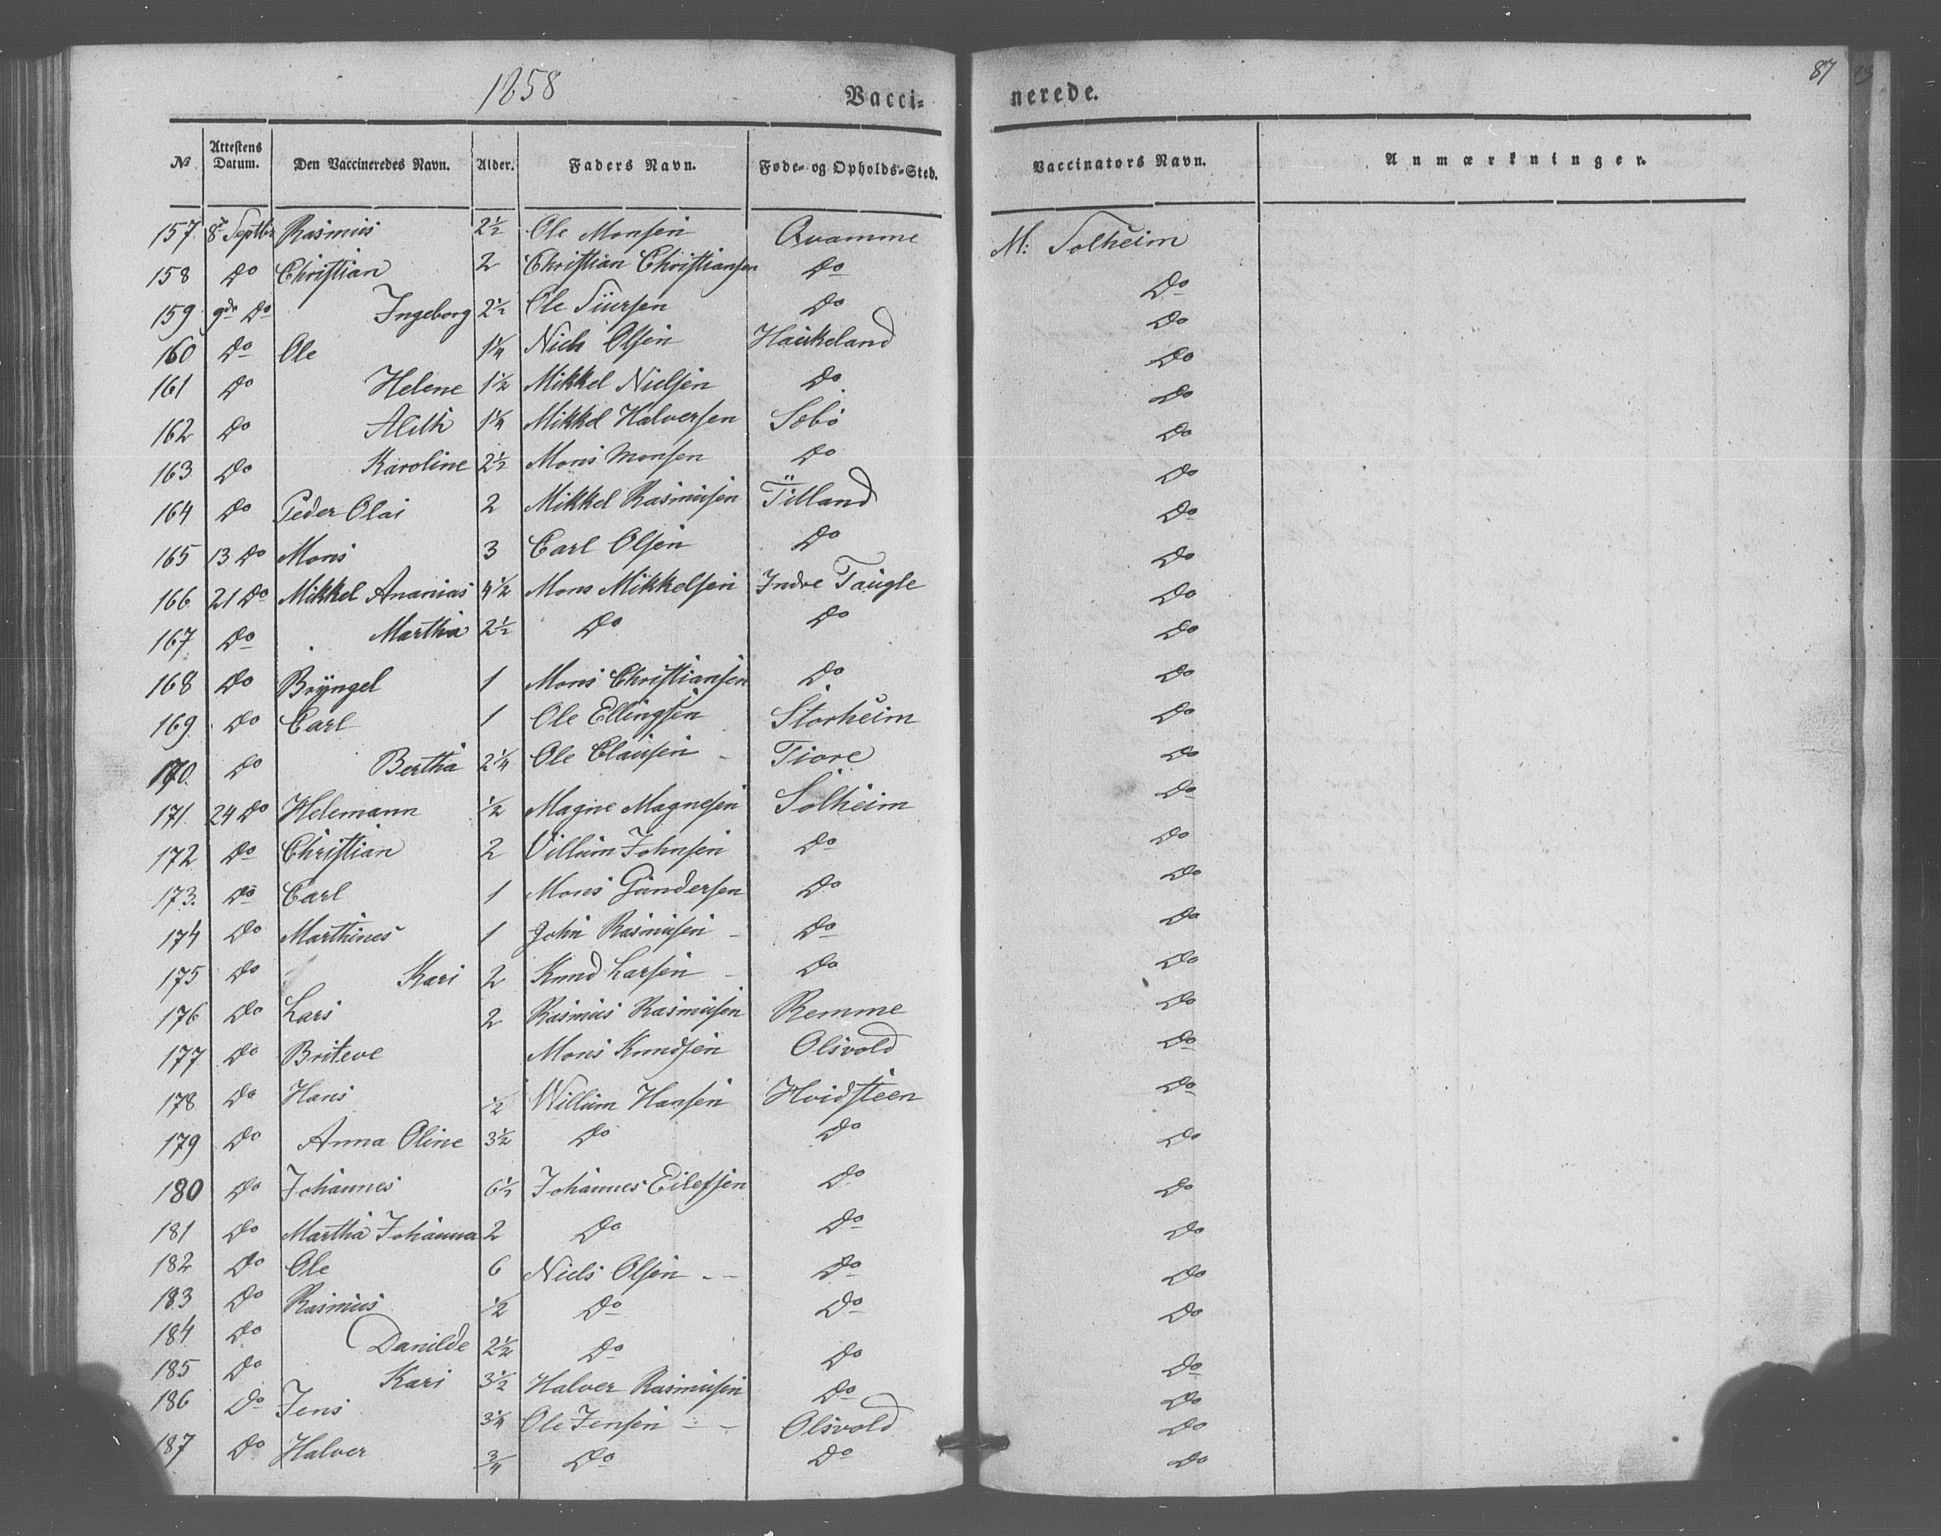 1858 Vaccinerede. 87
№ | Attestens Datum. | Den Vaccineredes Navn. | Alder. | Faders Navn. | Føde- og Opholds-Sted. | Vaccinators Navn. | Anmærkninger.
157 8de Septbr Rasmus 2½ Ole Monsen Qvamme M: Solheim
158 Do Christian 2 Christian Christiansen Do Do
159 9de Do Ingeborg 2½ Ole Do Do
160 Do Ole 1¼ Niels Olsen Haukeland Do
161 Do Helene 1½ Mikkel Nielsen Do Do
162 Do 1¼ Mikkel Halversen Sæbø Do
163 Do Karoline 2½ Mons Monsen Do Do
164 Do Peder Olai 2 Mikkel Rasmusen Do
165 13 Do Mons 3 Carl Olsen Do Do
166 21 Do Mikkel Ananias 4½ Mons Mikkelsen Indre Do
167 Do Martha 2½ Do Do Do
168 Do Bryngel 1 Mons Christiansen Do Do
169 Do Carl 1 Ole Ellingsen Storheim Do
170. Do Bertha 2¼ Ole Clausen Do
171 24 Do Helemann ½ Magne Magnesen Solheim Do
172 Do Christian 2 Villum Johnsen Do Do
173. Do Carl 1 Mons Gundersen Do Do
174 Do Marthines 1 John Rasmusen Do Do
175 Do Kari 2 Knud Larsen Do Do
176 Do Lars 2 Rasmus Rasmusen Remme Do
177 Do Briteve Mons Knudsen Olsvold Do
178 Do Hans ½ Willum Hansen Hvidsteen Do
179 Do Anna Oline 3½ Do Do Do
180 Do Johannes 6½ Johannes Eilefsen Do Do
181 Do Martha Johanna 2 Do Do Do
182 Do Ole 6 Niels Olsen Do Do
183 Do Rasmus ½ Do Do Do
184 Do Danilde 2½ Do Do Do
185 Do Kari 3½ Halver Rasmusen Do Do
186 Do Jens 3¼ Ole Jensen Olsvold Do
187 Do Halver ¾ Do Do Do